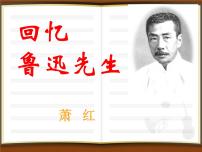 回忆
鲁迅先生
萧 红